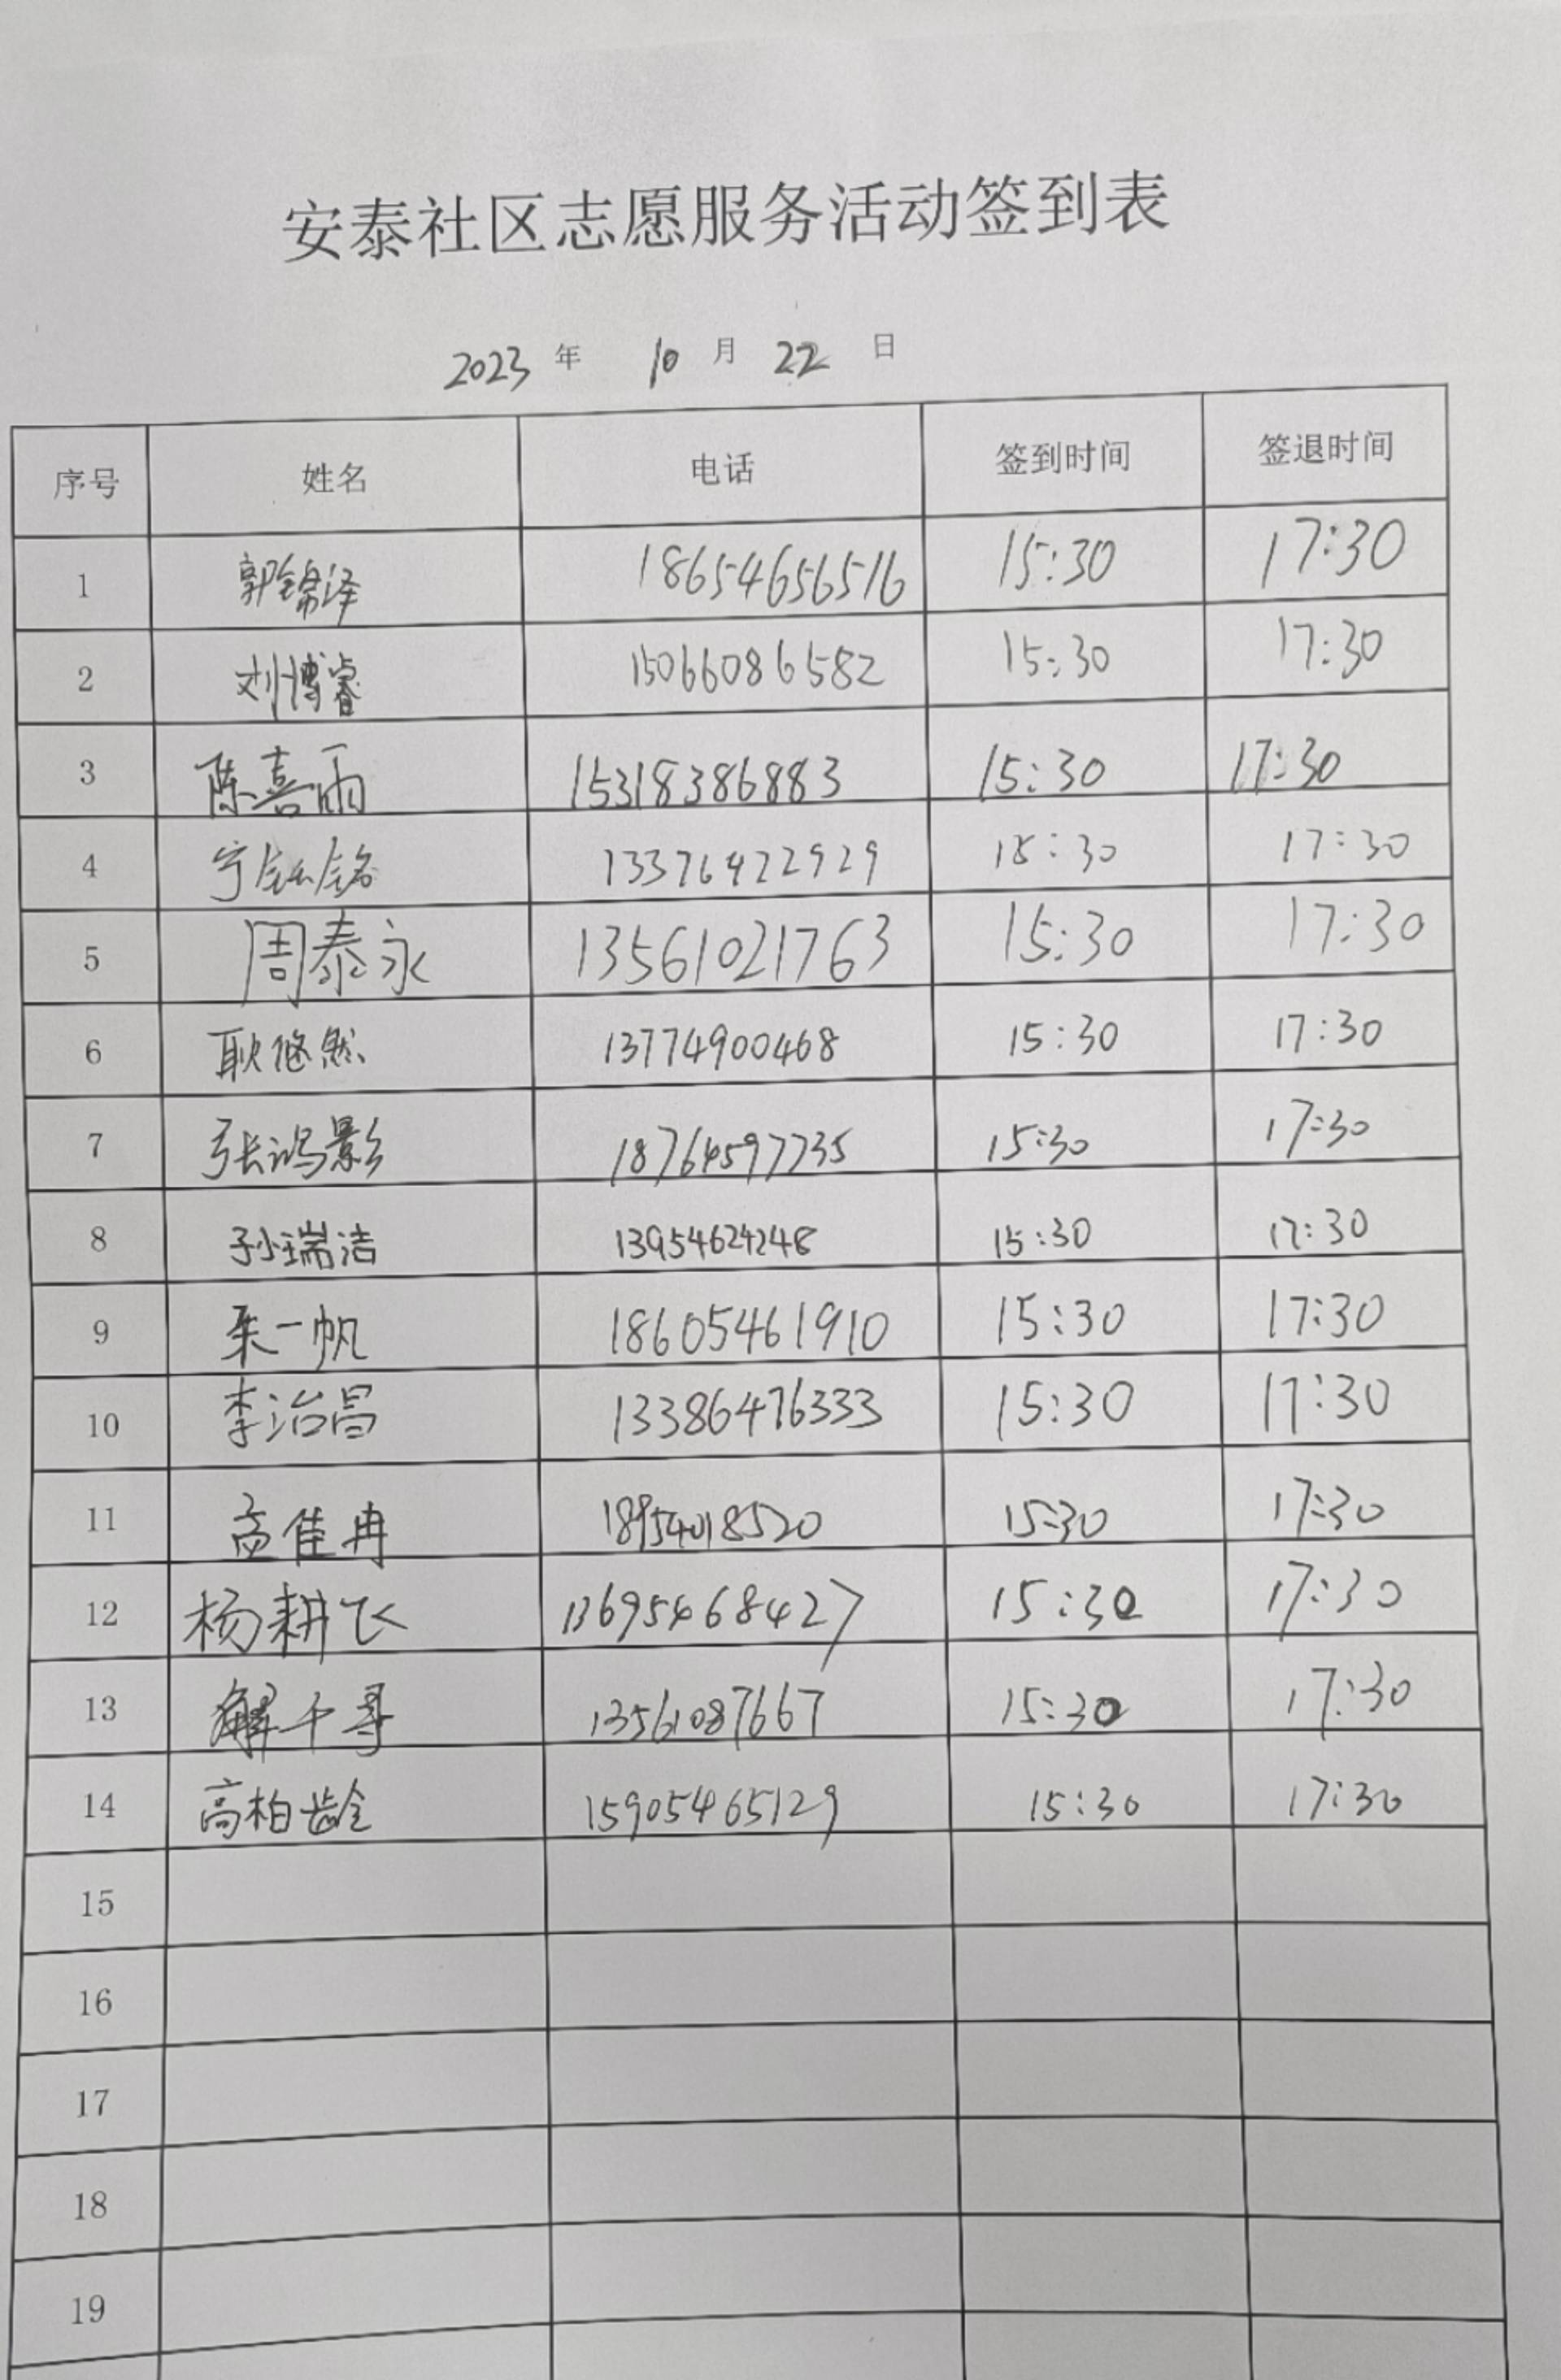 安泰社区志愿服务活动签到表
2023 年 10 月 22 日
序号 姓名 电话 签到时间 签退时间
1 郭锦泽 18654656516 15:30 17:30
2 刘博睿 15066086582 15:30 17:30
3 陈喜雨 15318386883 15:30 17:30
4 13376422929 15:30 17:30
5 周泰永 13561021763 15:30 17:30
6 耿悠然 13774900468 15:30 17:30
7 张鸿影 18764597735 15:30 17:30
8 孙瑞洁 13954624248 15:30 17:30
9 朱一帆 18605461910 15:30 17:30
10 李治昌 13386476333 15:30 17:30
11 孟佳冉 18954018520 15:30 17:30
12 杨耕飞 13695468427 15:30 17:30
13 解千哥 13561087667 15:30 17:30
14 高柏龄 15905465129 15:30 17:30
15
16
17
18
19